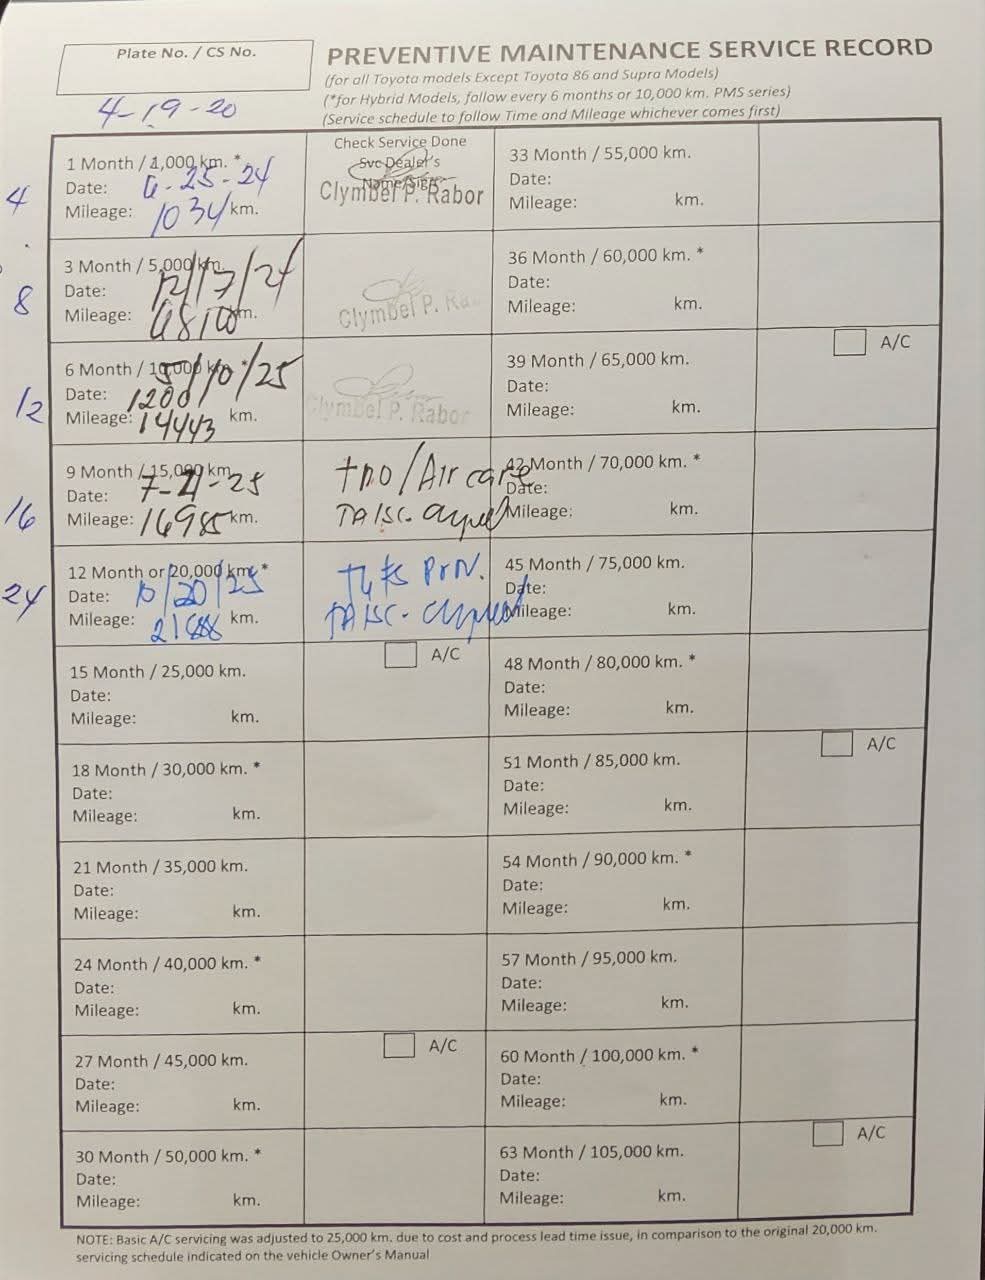 Plate No. / CS No.
PREVENTIVE MAINTENANCE SERVICE RECORD
(for all Toyota models Except Toyota 86 and Supra Models)
(*for Hybrid Models, follow every 6 months or 10,000 km. PMS series)
(Service schedule to follow Time and Mileage whichever comes first)
4-19-20
1 Month / 1,000 km. *
Date: 6-25-24
Mileage: 1034 km.
4
Check Service Done
Svc Dealer's
Name/Sign
Clymbel P. Rabor
3 Month / 5,000 km.
Date: 12/17/24
Mileage: km.
8
Clymbel P. Ra
6 Month / 10,000 km. *
Date: /10/25
Mileage: 14443 km.
12
Clymbel P. Rabor
9 Month / 15,000 km.
Date: 7-21-25
Mileage: 16985 km.
16
/Air care
12 Month or 20,000 km. *
Date: 10/20/25
Mileage: km.
24
15 Month / 25,000 km.
Date:
Mileage: km.
A/C
18 Month / 30,000 km. *
Date:
Mileage: km.
21 Month / 35,000 km.
Date:
Mileage: km.
24 Month / 40,000 km. *
Date:
Mileage: km.
27 Month / 45,000 km.
Date:
Mileage: km.
A/C
30 Month / 50,000 km. *
Date:
Mileage: km.
33 Month / 55,000 km.
Date:
Mileage: km.
36 Month / 60,000 km. *
Date:
Mileage: km.
39 Month / 65,000 km.
Date:
Mileage: km.
A/C
42 Month / 70,000 km. *
Date:
Mileage: km.
45 Month / 75,000 km.
Date:
Mileage: km.
48 Month / 80,000 km. *
Date:
Mileage: km.
51 Month / 85,000 km.
Date:
Mileage: km.
A/C
54 Month / 90,000 km. *
Date:
Mileage: km.
57 Month / 95,000 km.
Date:
Mileage: km.
60 Month / 100,000 km. *
Date:
Mileage: km.
63 Month / 105,000 km.
Date:
Mileage: km.
A/C
NOTE: Basic A/C servicing was adjusted to 25,000 km. due to cost and process lead time issue, in comparison to the original 20,000 km.
servicing schedule indicated on the vehicle Owner's Manual